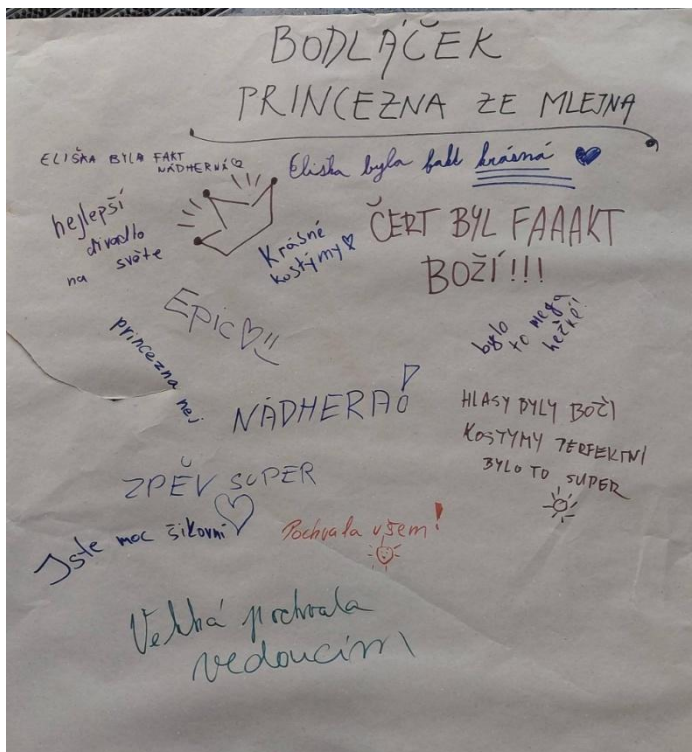 BODLÁČEK
PRINCEZNA ZE MLEJNA
ELIŠKA BYLA FAKT
NÁDHERNÁ
Eliška byla fakt krásná
nejlepší
divadlo
na světe
Krásné
kostýmy
ČERT BYL FAAAKT
BOŽÍ!!!
EPIC
bylo
to mega
hežké!!
princezna nej
NÁDHERA!
HLASY BYLY BOŽÍ
KOSTYMY PERFEKTNÍ
BYLO TO SUPER
ZPĚV SUPER
Jste moc šikovní
Pochvala všem!
Velká pochvala
vedoucím